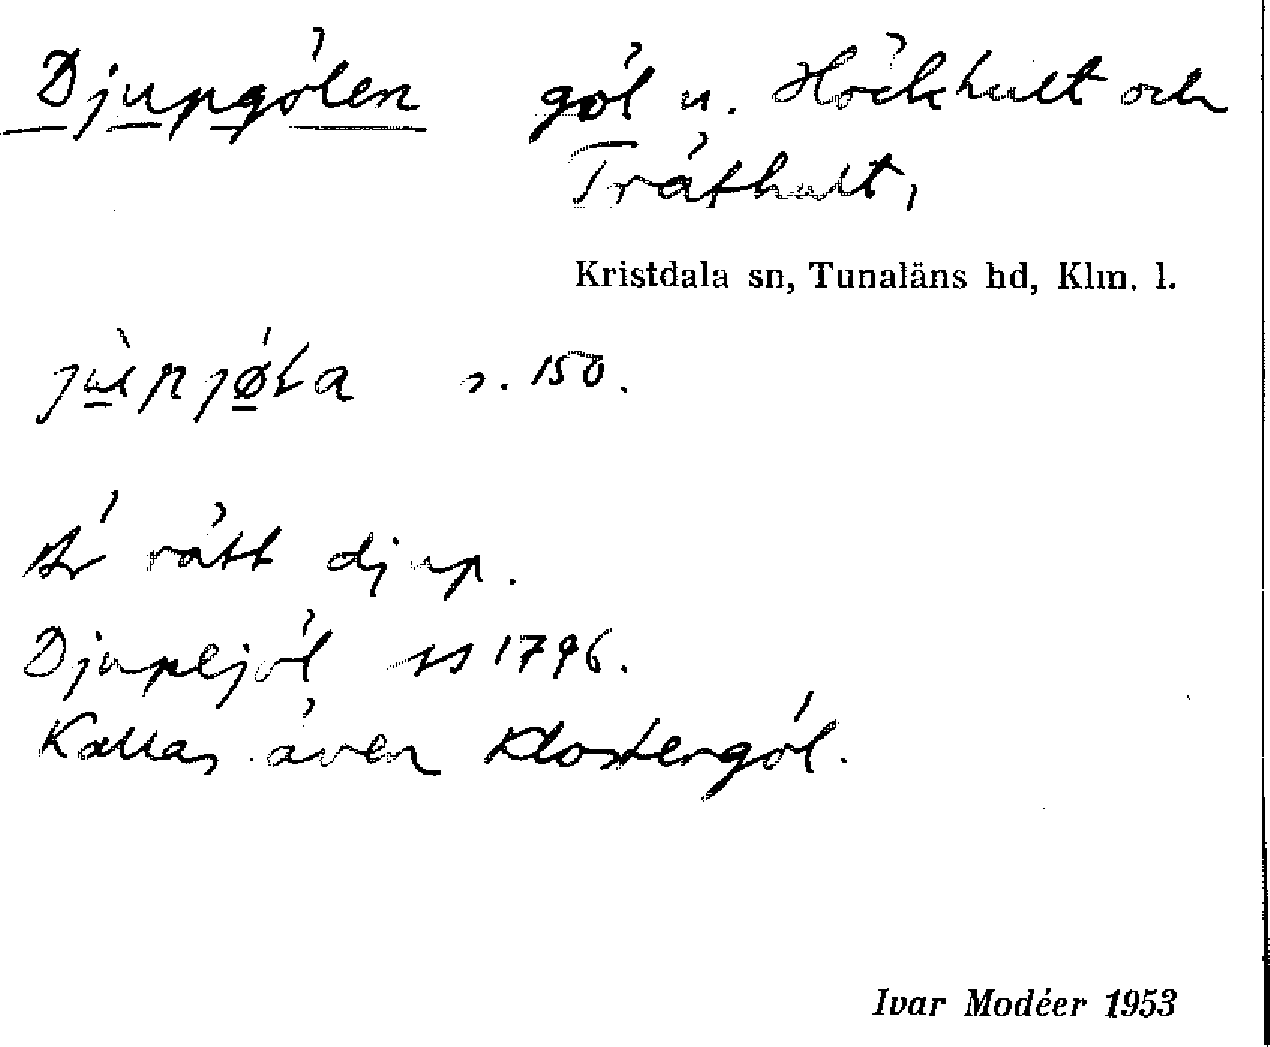 Djupgölen göl u. Höckhult och
Träthult,
Kristdala sn, Tunaläns hd, Klm. l.
s. 150.
Är rätt djup.
Djupejöl ss 1796.
Kallas även Klostergöl.
Ivar Modéer 1953